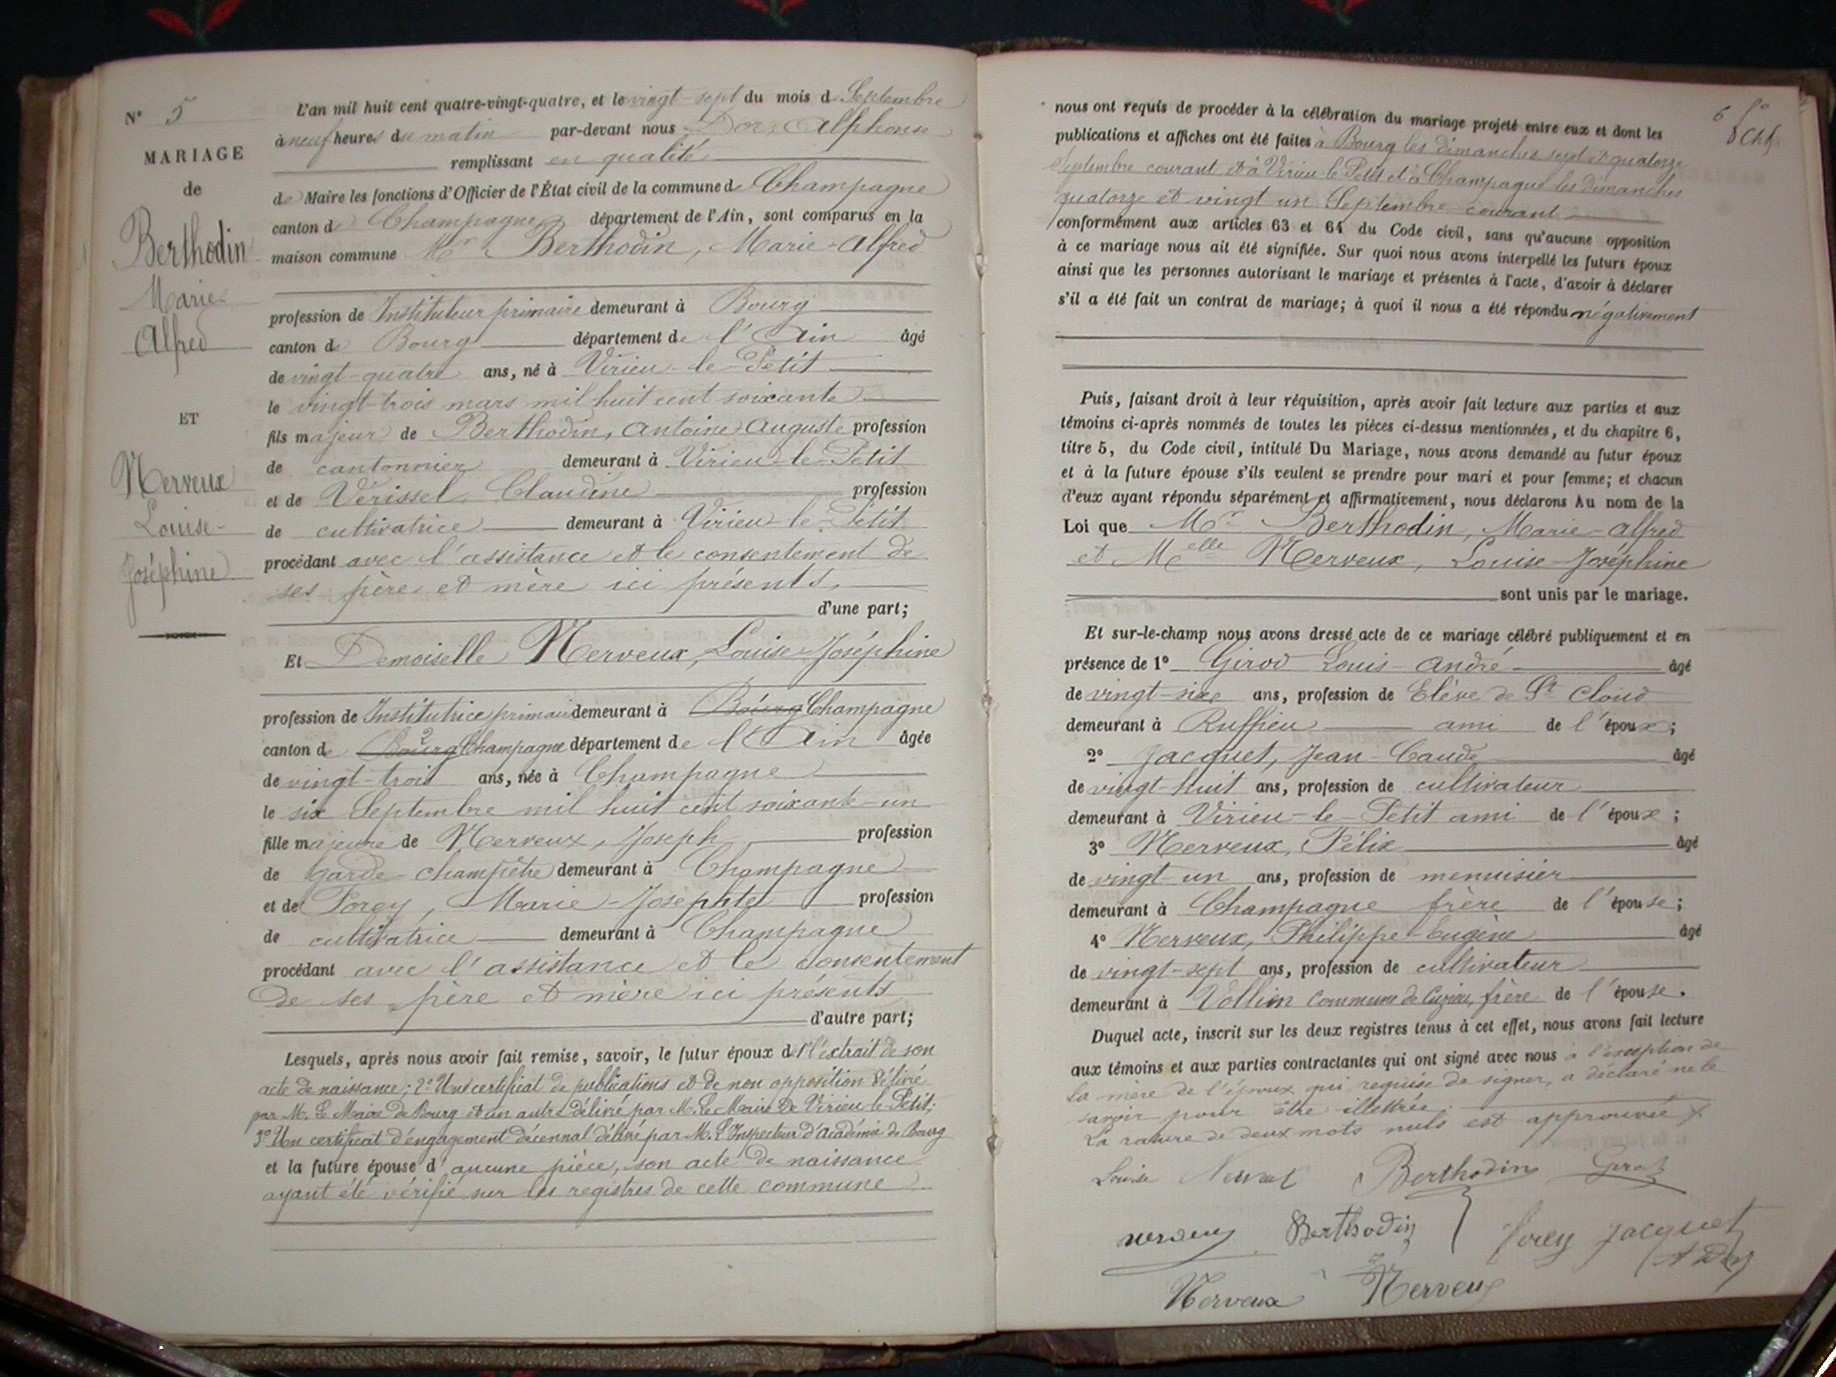 N° 5
MARIAGE
de
Berthodin
Marie
Alfred
ET
Nerveux
Louise-
Joséphine
L'an mil huit cent quatre-vingt-quatre, et le vingt-sept du mois de Septembre
à neuf heures du matin par-devant nous Alphonse
remplissant en qualité
de Maire les fonctions d'Officier de l'État civil de la commune de Champagne
canton de Champagne département de l'Ain, sont comparus en la
maison commune Mr Berthodin, Marie-Alfred
profession de Instituteur primaire demeurant à Bourg
canton de Bourg département de l'Ain âgé
de vingt-quatre ans, né à Virieu-le-Petit
le vingt-trois mars mil huit cent soixante
fils majeur de Berthodin, Antoine Auguste profession
de cantonnier demeurant à Virieu-le-Petit
et de Vérissel, Claudine profession
de cultivatrice demeurant à Virieu-le-Petit
procédant avec l'assistance et le consentement de
ses père et mère ici présents
d'une part;
Et Demoiselle Nerveux, Louise-Joséphine
profession de Institutrice primaire demeurant à Bourg Champagne
canton de Bourg Champagne département de l'Ain âgée
de vingt-trois ans, née à Champagne
le six Septembre mil huit cent soixante-un
fille majeure de Nerveux, Joseph profession
de Garde-champêtre demeurant à Champagne
et de Forey, Marie-Josephte profession
de cultivatrice demeurant à Champagne
procédant avec l'assistance et le consentement
de ses père et mère ici présents
d'autre part;
Lesquels, après nous avoir fait remise, savoir, le futur époux d 1° l'extrait de son
acte de naissance; 2° Un certificat de publications et de non opposition délivré
par Mr. Le Maire de Bourg et un autre délivré par Mr. Le Maire de Virieu-le-Petit;
3° Un certificat d'engagement décennal délivré par M. l'Inspecteur d'Académie de Bourg
et la future épouse d'aucune pièce, son acte de naissance
ayant été vérifié sur les registres de cette commune
nous ont requis de procéder à la célébration du mariage projeté entre eux et dont les
publications et affiches ont été faites à Bourg les dimanches sept et quatorze
Septembre courant et à Virieu-le-Petit et à Champagne les dimanches
quatorze et vingt un Septembre courant
conformément aux articles 63 et 64 du Code civil, sans qu'aucune opposition
à ce mariage nous ait été signifiée. Sur quoi nous avons interpellé les futurs époux
ainsi que les personnes autorisant le mariage et présentes à l'acte, d'avoir à déclarer
s'il a été fait un contrat de mariage; à quoi il nous a été répondu négativement
Puis, faisant droit à leur réquisition, après avoir fait lecture aux parties et aux
témoins ci-après nommés de toutes les pièces ci-dessus mentionnées, et du chapitre 6,
titre 5, du Code civil, intitulé Du Mariage, nous avons demandé au futur époux
et à la future épouse s'ils veulent se prendre pour mari et pour femme; et chacun
d'eux ayant répondu séparément et affirmativement, nous déclarons Au nom de la
Loi que Mr Berthodin, Marie-Alfred
et Melle Nerveux, Louise-Joséphine
sont unis par le mariage.
Et sur-le-champ nous avons dressé acte de ce mariage célébré publiquement et en
présence de 1° Girod Louis-André âgé
de vingt-six ans, profession de Elève de St Cloud
demeurant à Ruffieu ami de l'époux;
2° Jacquet, Jean-Caude âgé
de vingt-huit ans, profession de cultivateur
demeurant à Virieu-le-Petit ami de l'époux;
3° Nerveux, Félix âgé
de vingt un ans, profession de menuisier
demeurant à Champagne frère de l'épouse;
4° Nerveux, Philippe-Eugène âgé
de vingt-sept ans, profession de cultivateur
demeurant à Vollien Commune de Cuzieu, frère de l'épouse.
Duquel acte, inscrit sur les deux registres tenus à cet effet, nous avons fait lecture
aux témoins et aux parties contractantes qui ont signé avec nous à l'exception de
la mère de l'époux, qui requise de signer, a déclaré ne le
savoir pour être illettrée.
La rature de deux mots nuls est approuvée
Louise Berthodin
Berthodin Forey Jacquet
Nerveux Nerveux